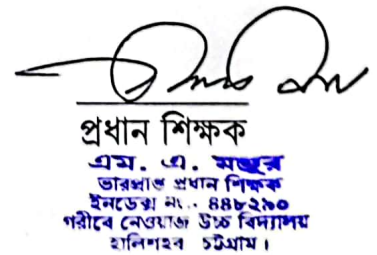 প্রধান শিক্ষক
এম. এ. মঞ্জুর
ভারপ্রাপ্ত প্রধান শিক্ষক
ইনডেক্স নং.- ৪৪৮২৯০
গরীবে নেওয়াজ উচ্চ বিদ্যালয়
হালিশহর চট্টগ্রাম।